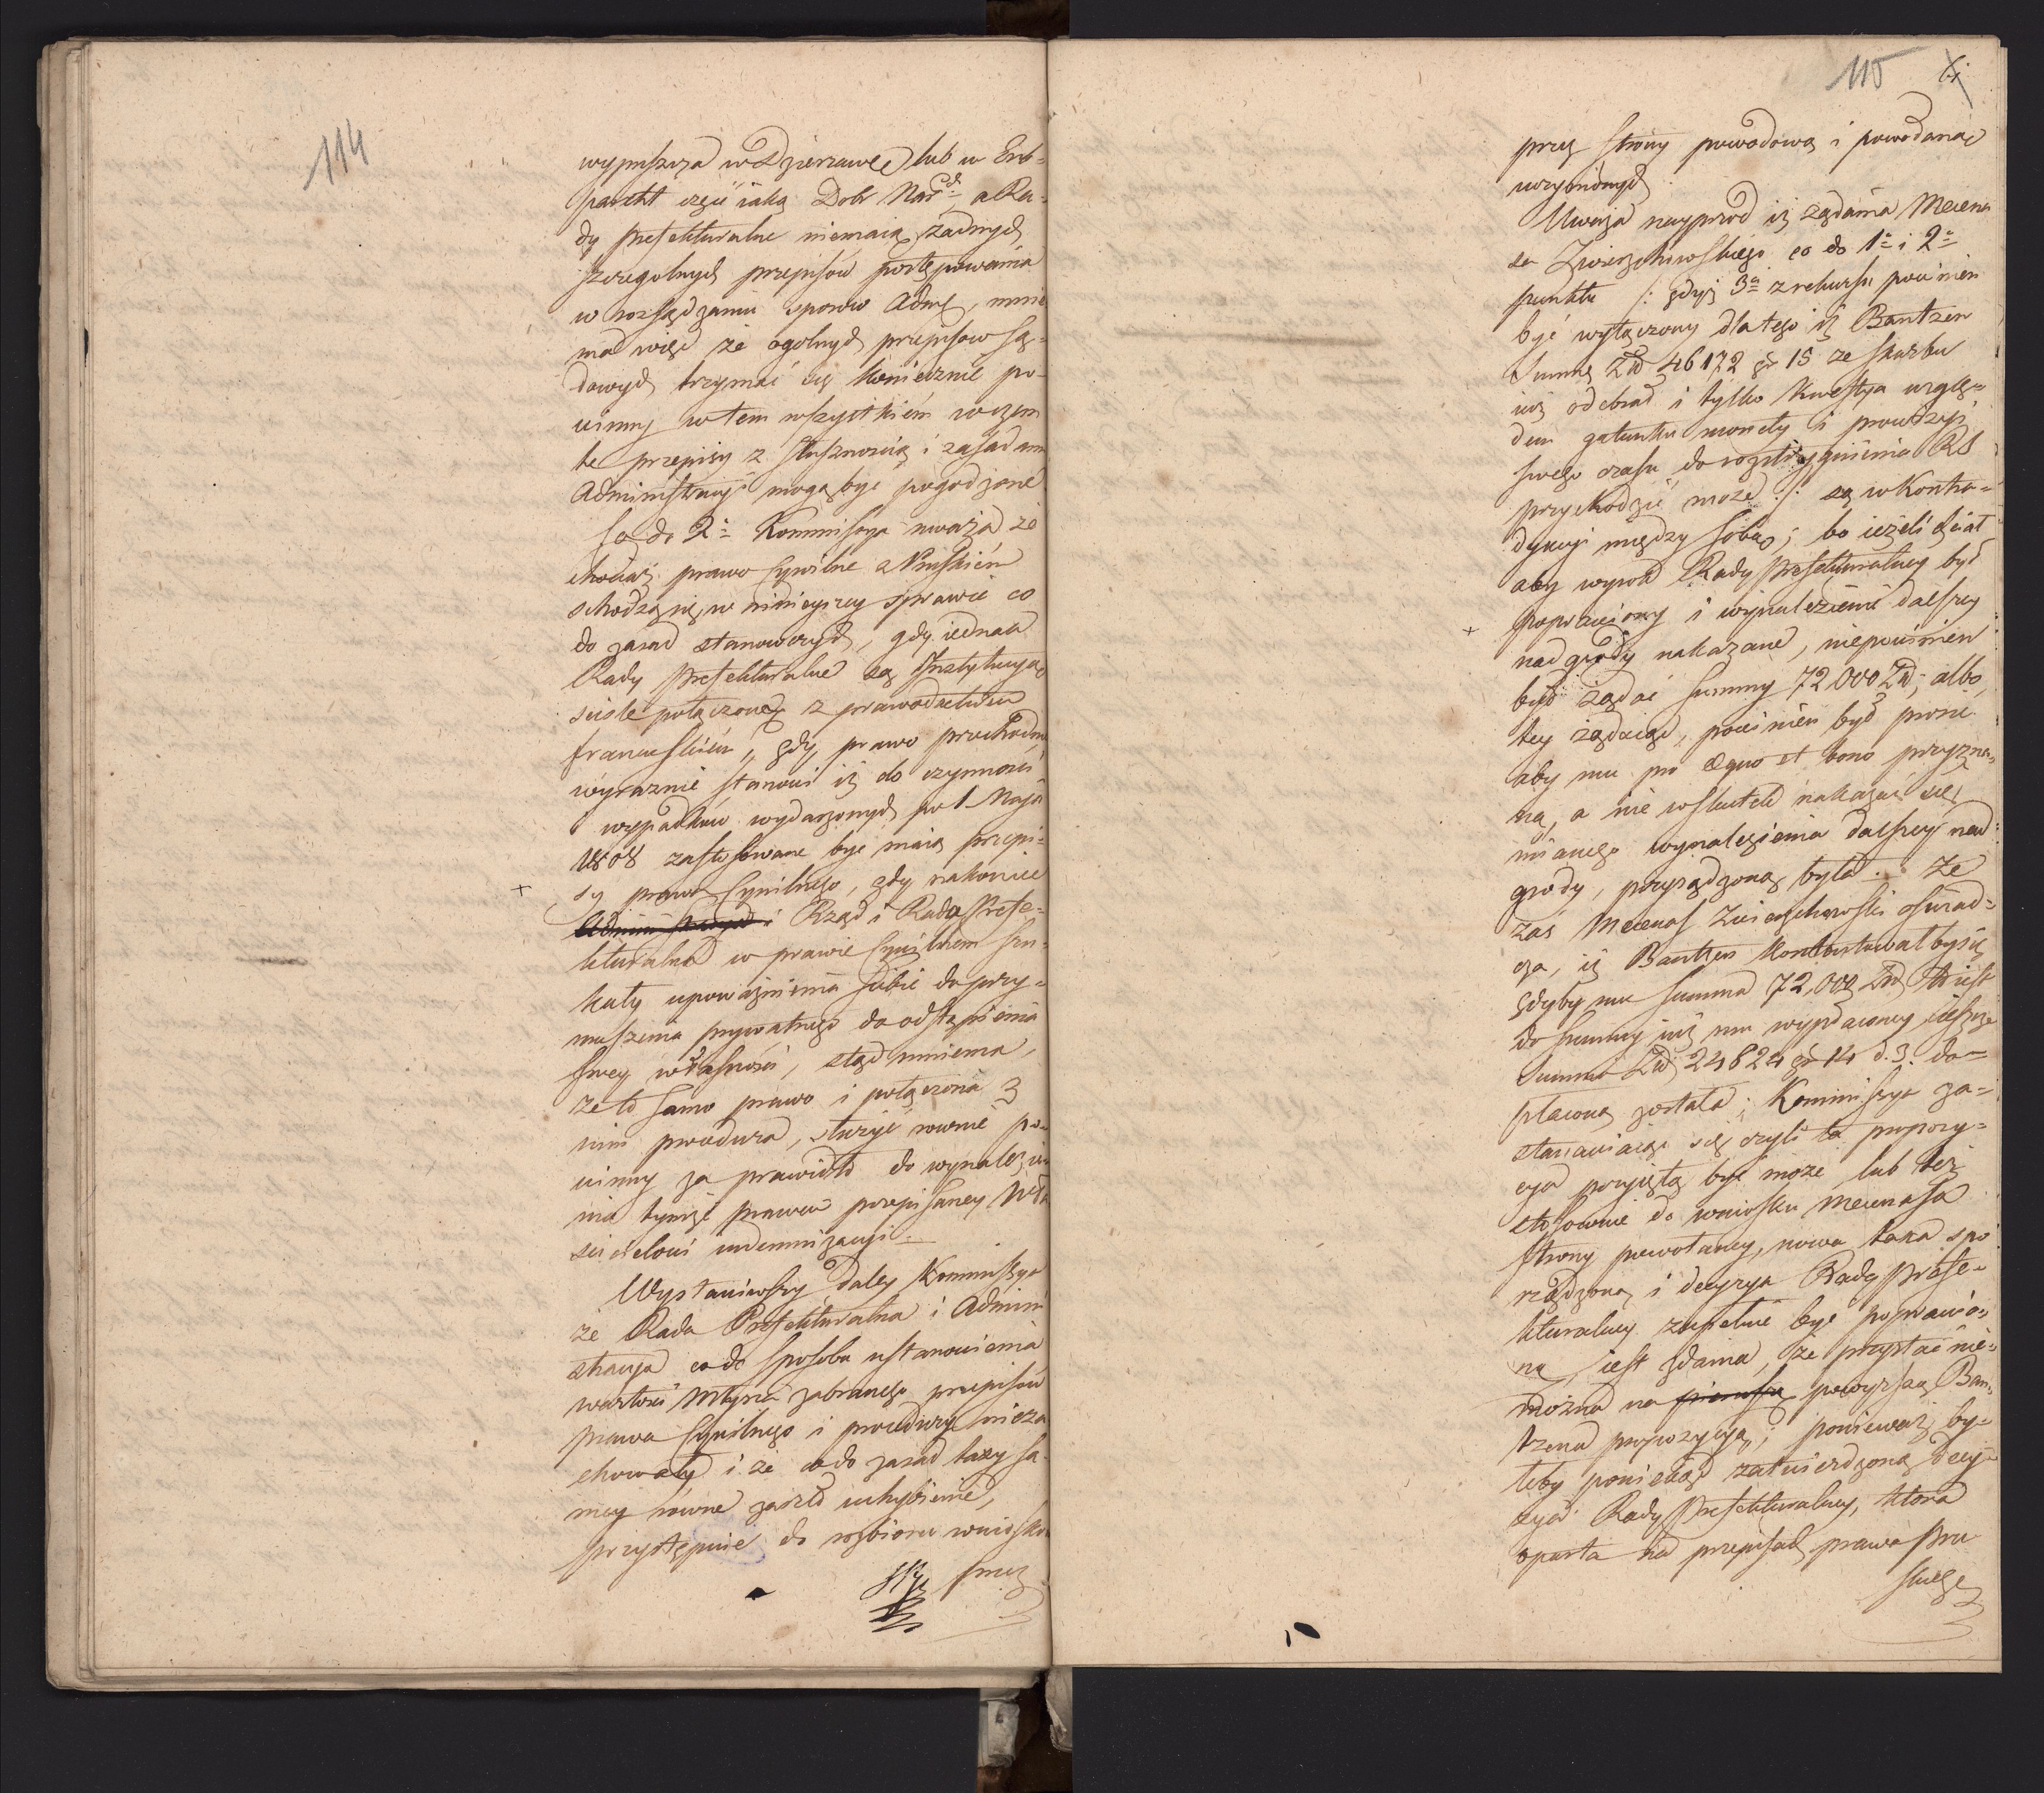 114
wypuszcza w dzierzawę lub w Erb-
pacht część iaką Dobr Nar:ch a Ra-
dy Prefekturalne niemaią żadnych
szczegolnych przepisow postępowania
w rozsądzaniu sporow Adm:, mnie
ma więc że ogolnych przepisow Są-
dowych trzymać się koniecznie po-
winny w tem wszystkiém w czem
te przepisy z słusznością i zasadami
Administracyi mogą bydź pogodzone
Co do 2o Kommissya uważa że
chociaż prawo Cywilne z Pruskiém
schodzą się, w ninieyszey sprawie co
do zasad stanowczych, gdy iednak
Rady Prefekturalne są Instytucyą
scisle połączoną z prawodactwem
francuskiém, gdy prawo przechodnie
wyraznie stanowi iż do czynnosci
i wypadkow wydarzonych po 1 Maja
1808 zastosowane być maią przepi-
sy prawa Cywilnego, gdy nakoniec
Rząd i Rada Prefe-
kturalna w prawie Cywilnem szu-
kały upoważnienia siebie do przy-
muszenia prywatnego do odstąpienia
swey własnosci, ztąd mniema,
że to samo prawo i połączona z
nim procedura, służyć rownie po-
winny za prawidło do wynalezie-
nia tymże prawem przepisaney Wła
scicielowi indemnizacyi.
Wystawiwszy daley Kommissya
że Rada Prefekturalna i Admini
stracya co do sposobu ustanowienia
wartosci Młyna zabranego przepisów
prawa Cywilnego i procedury nieza
chowały i że co do zasad taxy sa-
mey rowne zaszło uchybienie,
przystępuie do rozbioru wniosków
przez
115
przez Strony powodową i powodaną
uczynionych
Uważa nayprzod iż żądania Mecena
sa Zwierzchowskiego co do 1o i 2o
punktu /: gdyż 3ci z rekursu powinien
być wyłączony dlatego iż Bantzen
Summę Złp 46172 gr 15 ze skarbu
iuż odebrał i tylko kwestya wzglę-
dem gatunku monety i prowizyi
swego czasu do rozstrzygnienia RS
przychodzić może :/ są w kontra-
dykcyi między sobą; bo ieżeli chciał
aby wyrok Rady Prefekturalney był
poprawiony i wynalezienie dalszey
nadgrody nakazane, niepowinien
był żądać summy 72000 Złp; albo,
tey żądaiąc, powinien był prosić
aby mu pro aequo et bono przyzna-
ną, a nie wskutek nakazać się
mianego wynalezienia dalszey nad-
grody, przysądzoną była. Że
zaś Mecenas Zwierzchowski oświad-
cza, iż Bantzen kontentowałby się
gdyby mu summa 72,000 Złp to iest
do summy iuż mu wypłaconey ieszcze
summa Złp 24824 gr 14 d. 3. do-
płacona została; Kommissya za-
stanawiaiąc się czyli ta propozy-
cya przyięta być może lub też
stosownie do wniosku Mecenasa
Strony powołaney, nowa taxa spo
rządzona i decyzya Rady Prefe-
kturalney zupełnie być poprawio-
na, iest zdania, że przystać nie-
można na pierwszą powyższą Ban-
tzena propozycyą; ponieważ by-
łaby poniekąd zatwierdzoną decy-
zya Rady Prefekturalney, ktora
oparta na przepisach prawa Pru
skiego